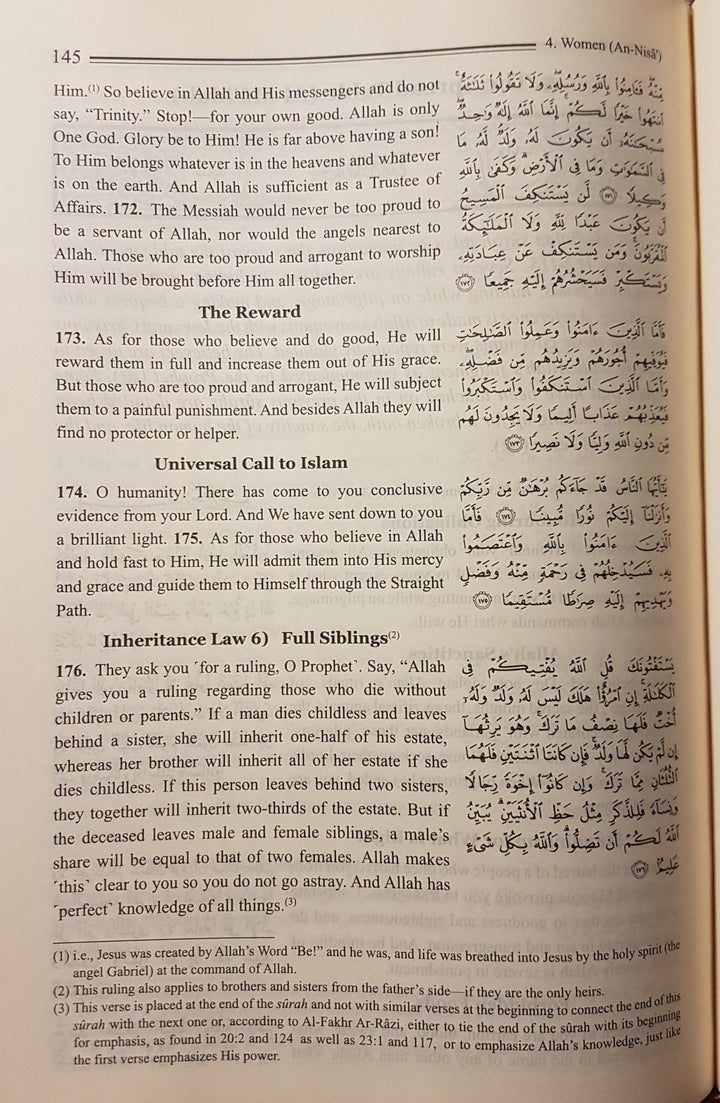 145
4. Women (An-Nisâ')
Him.(1) So believe in Allah and His messengers and do not
say, “Trinity.” Stop!—for your own good. Allah is only
One God. Glory be to Him! He is far above having a son!
To Him belongs whatever is in the heavens and whatever
is on the earth. And Allah is sufficient as a Trustee of
Affairs. 172. The Messiah would never be too proud to
be a servant of Allah, nor would the angels nearest to
Allah. Those who are too proud and arrogant to worship
Him will be brought before Him all together.
مِّنْهُ فَـَٔامِنُوا۟ بِٱللَّهِ وَرُسُلِهِۦ وَلَا تَقُولُوا۟ ثَلَـٰثَةٌ
ٱنتَهُوا۟ خَيْرًا لَّكُمْ إِنَّمَا ٱللَّهُ إِلَـٰهٌ وَٰحِدٌ
سُبْحَـٰنَهُۥٓ أَن يَكُونَ لَهُۥ وَلَدٌ لَّهُۥ مَا
فِى ٱلسَّمَـٰوَٰتِ وَمَا فِى ٱلْأَرْضِ وَكَفَىٰ بِٱللَّهِ
وَكِيلًا ١٧١ لَّن يَسْتَنكِفَ ٱلْمَسِيحُ
أَن يَكُونَ عَبْدًا لِّلَّهِ وَلَا ٱلْمَلَـٰٓئِكَةُ
ٱلْمُقَرَّبُونَ وَمَن يَسْتَنكِفْ عَنْ عِبَادَتِهِۦ
وَيَسْتَكْبِرْ فَسَيَحْشُرُهُمْ إِلَيْهِ جَمِيعًا ١٧٢
The Reward
173. As for those who believe and do good, He will
reward them in full and increase them out of His grace.
But those who are too proud and arrogant, He will subject
them to a painful punishment. And besides Allah they will
find no protector or helper.
فَأَمَّا ٱلَّذِينَ ءَامَنُوا۟ وَعَمِلُوا۟ ٱلصَّـٰلِحَـٰتِ
فَيُوَفِّيهِمْ أُجُورَهُمْ وَيَزِيدُهُم مِّن فَضْلِهِۦ
وَأَمَّا ٱلَّذِينَ ٱسْتَنكَفُوا۟ وَٱسْتَكْبَرُوا۟
فَيُعَذِّبُهُمْ عَذَابًا أَلِيمًا وَلَا يَجِدُونَ لَهُم
مِّن دُونِ ٱللَّهِ وَلِيًّا وَلَا نَصِيرًا ١٧٣
Universal Call to Islam
174. O humanity! There has come to you conclusive
evidence from your Lord. And We have sent down to you
a brilliant light. 175. As for those who believe in Allah
and hold fast to Him, He will admit them into His mercy
and grace and guide them to Himself through the Straight
Path.
يَـٰٓأَيُّهَا ٱلنَّاسُ قَدْ جَآءَكُم بُرْهَـٰنٌ مِّن رَّبِّكُمْ
وَأَنزَلْنَآ إِلَيْكُمْ نُورًا مُّبِينًا ١٧٤ فَأَمَّا
ٱلَّذِينَ ءَامَنُوا۟ بِٱللَّهِ وَٱعْتَصَمُوا۟
بِهِۦ فَسَيُدْخِلُهُمْ فِى رَحْمَةٍ مِّنْهُ وَفَضْلٍ
وَيَهْدِيهِمْ إِلَيْهِ صِرَٰطًا مُّسْتَقِيمًا ١٧٥
Inheritance Law 6) Full Siblings(2)
176. They ask you ˹for a ruling, O Prophet˺. Say, “Allah
gives you a ruling regarding those who die without
children or parents.” If a man dies childless and leaves
behind a sister, she will inherit one-half of his estate,
whereas her brother will inherit all of her estate if she
dies childless. If this person leaves behind two sisters,
they together will inherit two-thirds of the estate. But if
the deceased leaves male and female siblings, a male’s
share will be equal to that of two females. Allah makes
˹this˺ clear to you so you do not go astray. And Allah has
˹perfect˺ knowledge of all things.(3)
يَسْتَفْتُونَكَ قُلِ ٱللَّهُ يُفْتِيكُمْ فِى
ٱلْكَلَـٰلَةِ إِنِ ٱمْرُؤٌا۟ هَلَكَ لَيْسَ لَهُۥ وَلَدٌ وَلَهُۥٓ
أُخْتٌ فَلَهَا نِصْفُ مَا تَرَكَ وَهُوَ يَرِثُهَآ
إِن لَّمْ يَكُن لَّهَا وَلَدٌ فَإِن كَانَتَا ٱثْنَتَيْنِ فَلَهُمَا
ٱلثُّلُثَانِ مِمَّا تَرَكَ وَإِن كَانُوٓا۟ إِخْوَةً رِّجَالًا
وَنِسَآءً فَلِلذَّكَرِ مِثْلُ حَظِّ ٱلْأُنثَيَيْنِ يُبَيِّنُ
ٱللَّهُ لَكُمْ أَن تَضِلُّوا۟ وَٱللَّهُ بِكُلِّ شَىْءٍ
عَلِيمٌ ١٧٦
(1) i.e., Jesus was created by Allah’s Word “Be!” and he was, and life was breathed into Jesus by the holy spirit (the
angel Gabriel) at the command of Allah.
(2) This ruling also applies to brothers and sisters from the father’s side—if they are the only heirs.
(3) This verse is placed at the end of the sûrah and not with similar verses at the beginning to connect the end of this
sûrah with the next one or, according to Al-Fakhr Ar-Râzi, either to tie the end of the sûrah with its beginning
for emphasis, as found in 20:2 and 124 as well as 23:1 and 117, or to emphasize Allah’s knowledge, just like
the first verse emphasizes His power.